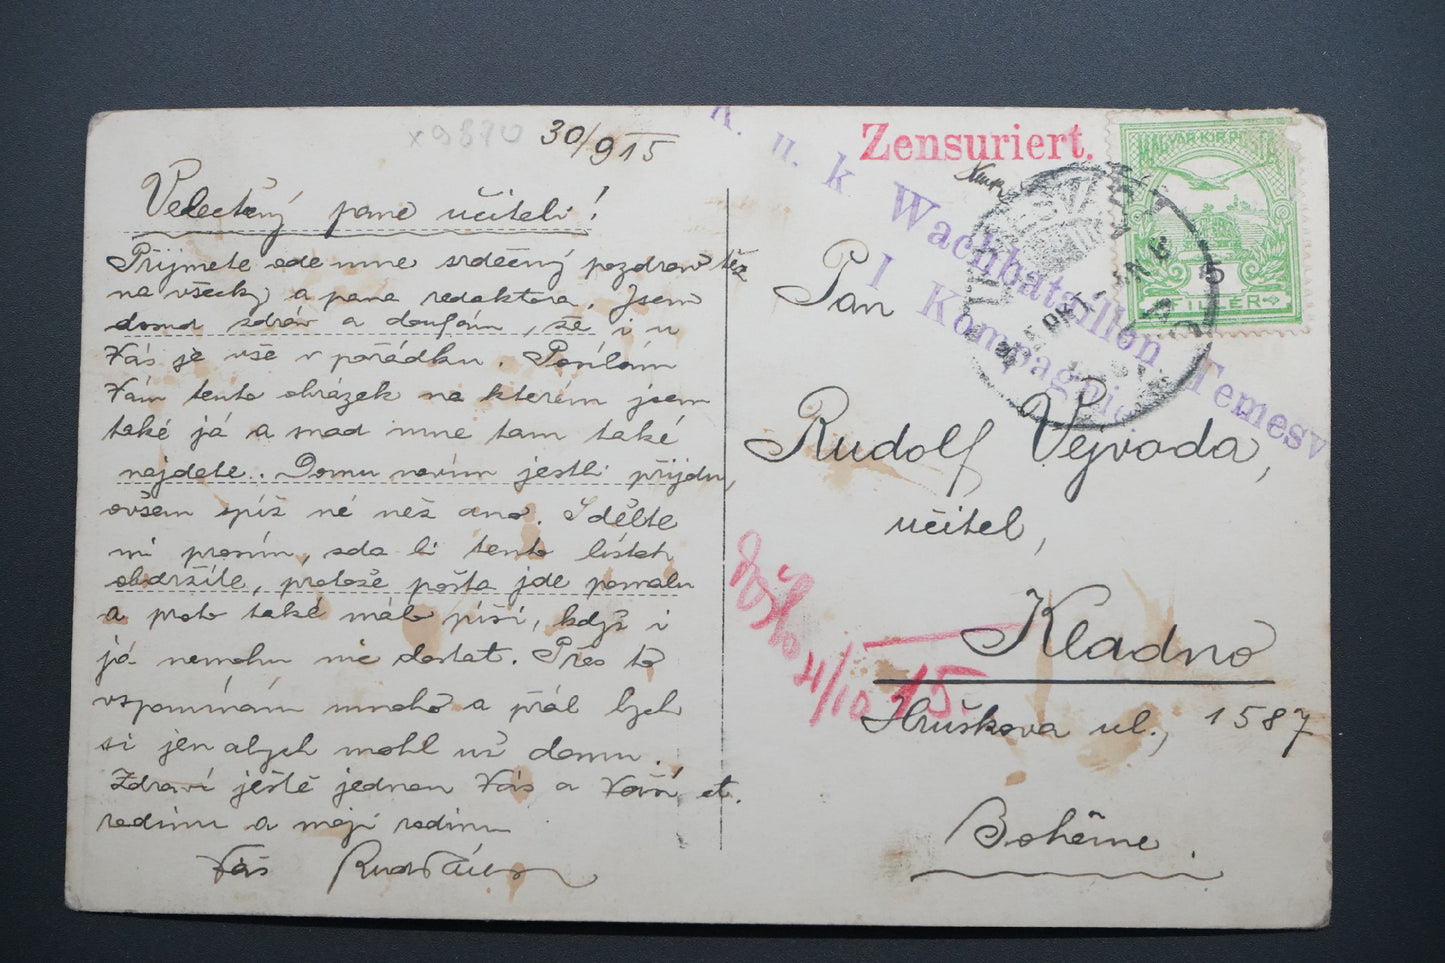 x9870
30/9 15
Velectěný pane učiteli!
Přijmete ode mne srdečný pozdrav též
na všecky a pana redaktora. Jsem
doma zdráv a doufám, že i u
Vás je vše v pořádku. Posílám
Vám tento obrázek na kterém jsem
také já a snad mne tam také
najdete. Domu nevím jestli přijdu,
ovšem spíž né než ano. Sdělte
mi prosím, zda li tento lístek
obdržíte, protože pošta jde pomalu
a proto také málo píši, když i
já nemohu nic dostat. Přes to
vzpomínám mnoho a přál bych
si jen abych mohl už domu.
Zdraví ještě jednou Vás a Vaší ct.
rodinu a moji rodinu
Váš
Zensuriert.
K. u. k Wachbataillon Temesv
I Kompagnie
MAGYAR KIR. POSTA
5
FILLÉR
Pan
Rudolf Vejvoda,
učitel,
Kladno
Hruškova ul., 1587
Bohême.
4/10 15.